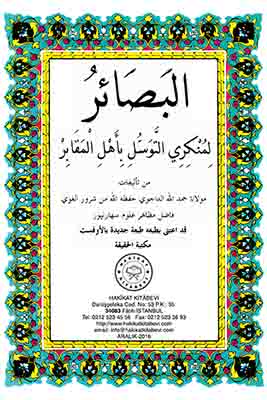 البَصَائِرُ
لِمُنْكِرِي التَّوَسُّلِ بِأَهْلِ الْمَقَابِرُ
من تأليفات
مولانا حمد الله الداجوي حفظه الله من شرور الغوي
فاضل مظاهر علوم سهارنپور
قد اعتنى بطبعه طبعة جديدة بالأوفست
مكتبة الحقيقة
HAKİKAT KİTABEVİ
HAKİKAT KİTABEVİ
Darüşşefeka Cad. No: 53 P.K.: 35
34083 Fâtih-İSTANBUL
Tel: 0212 523 45 56 Fax: 0212 523 36 93
http://www.hakikatkitabevi.com
email: info@hakikatkitabevi.com
ARALIK-2016